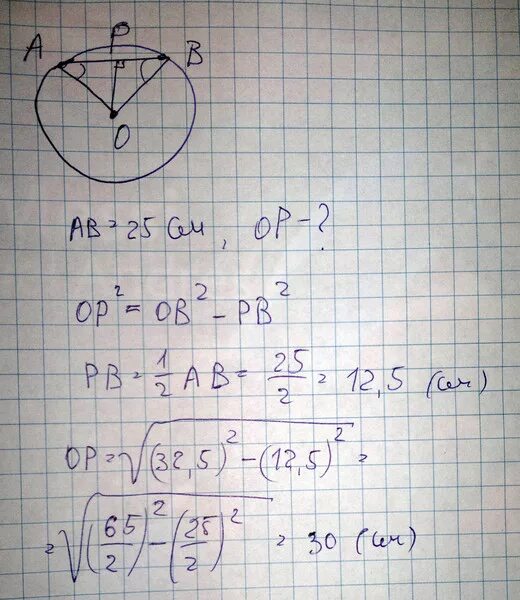 P
A B
O
AB = 25 см, OP - ?
OP² = OB² - PB²
PB = 1/2 AB = 25/2 = 12,5 (см)
OP = √((32,5)² - (12,5)²) =
= √((65/2)² - (25/2)²) = 30 (см)